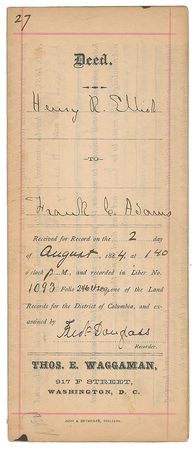 27
Deed.
Henry R. Elliot
TO
Frank C Adams
Received for Record on the 2 day
of August, 1884, at 1.40
o'clock P M., and recorded in Liber No.
1093 Folio one of the Land
Records for the District of Columbia, and ex-
amined by
Fredk Douglass
Recorder.
THOS. E. WAGGAMAN,
917 F STREET,
WASHINGTON, D. C.